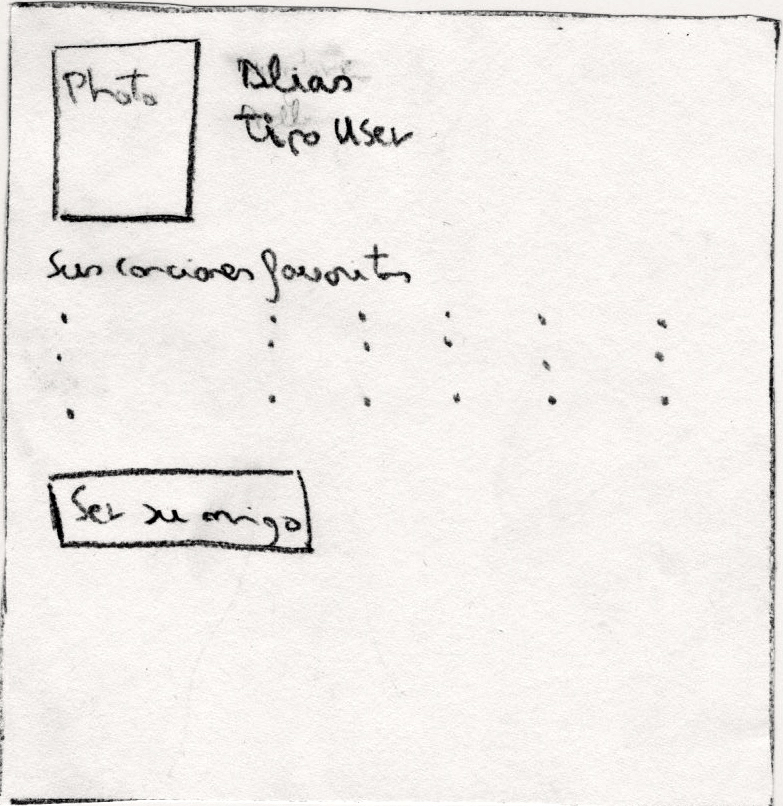 Photo
Alias
tipo User
Sus canciones favoritas
Ser su amigo